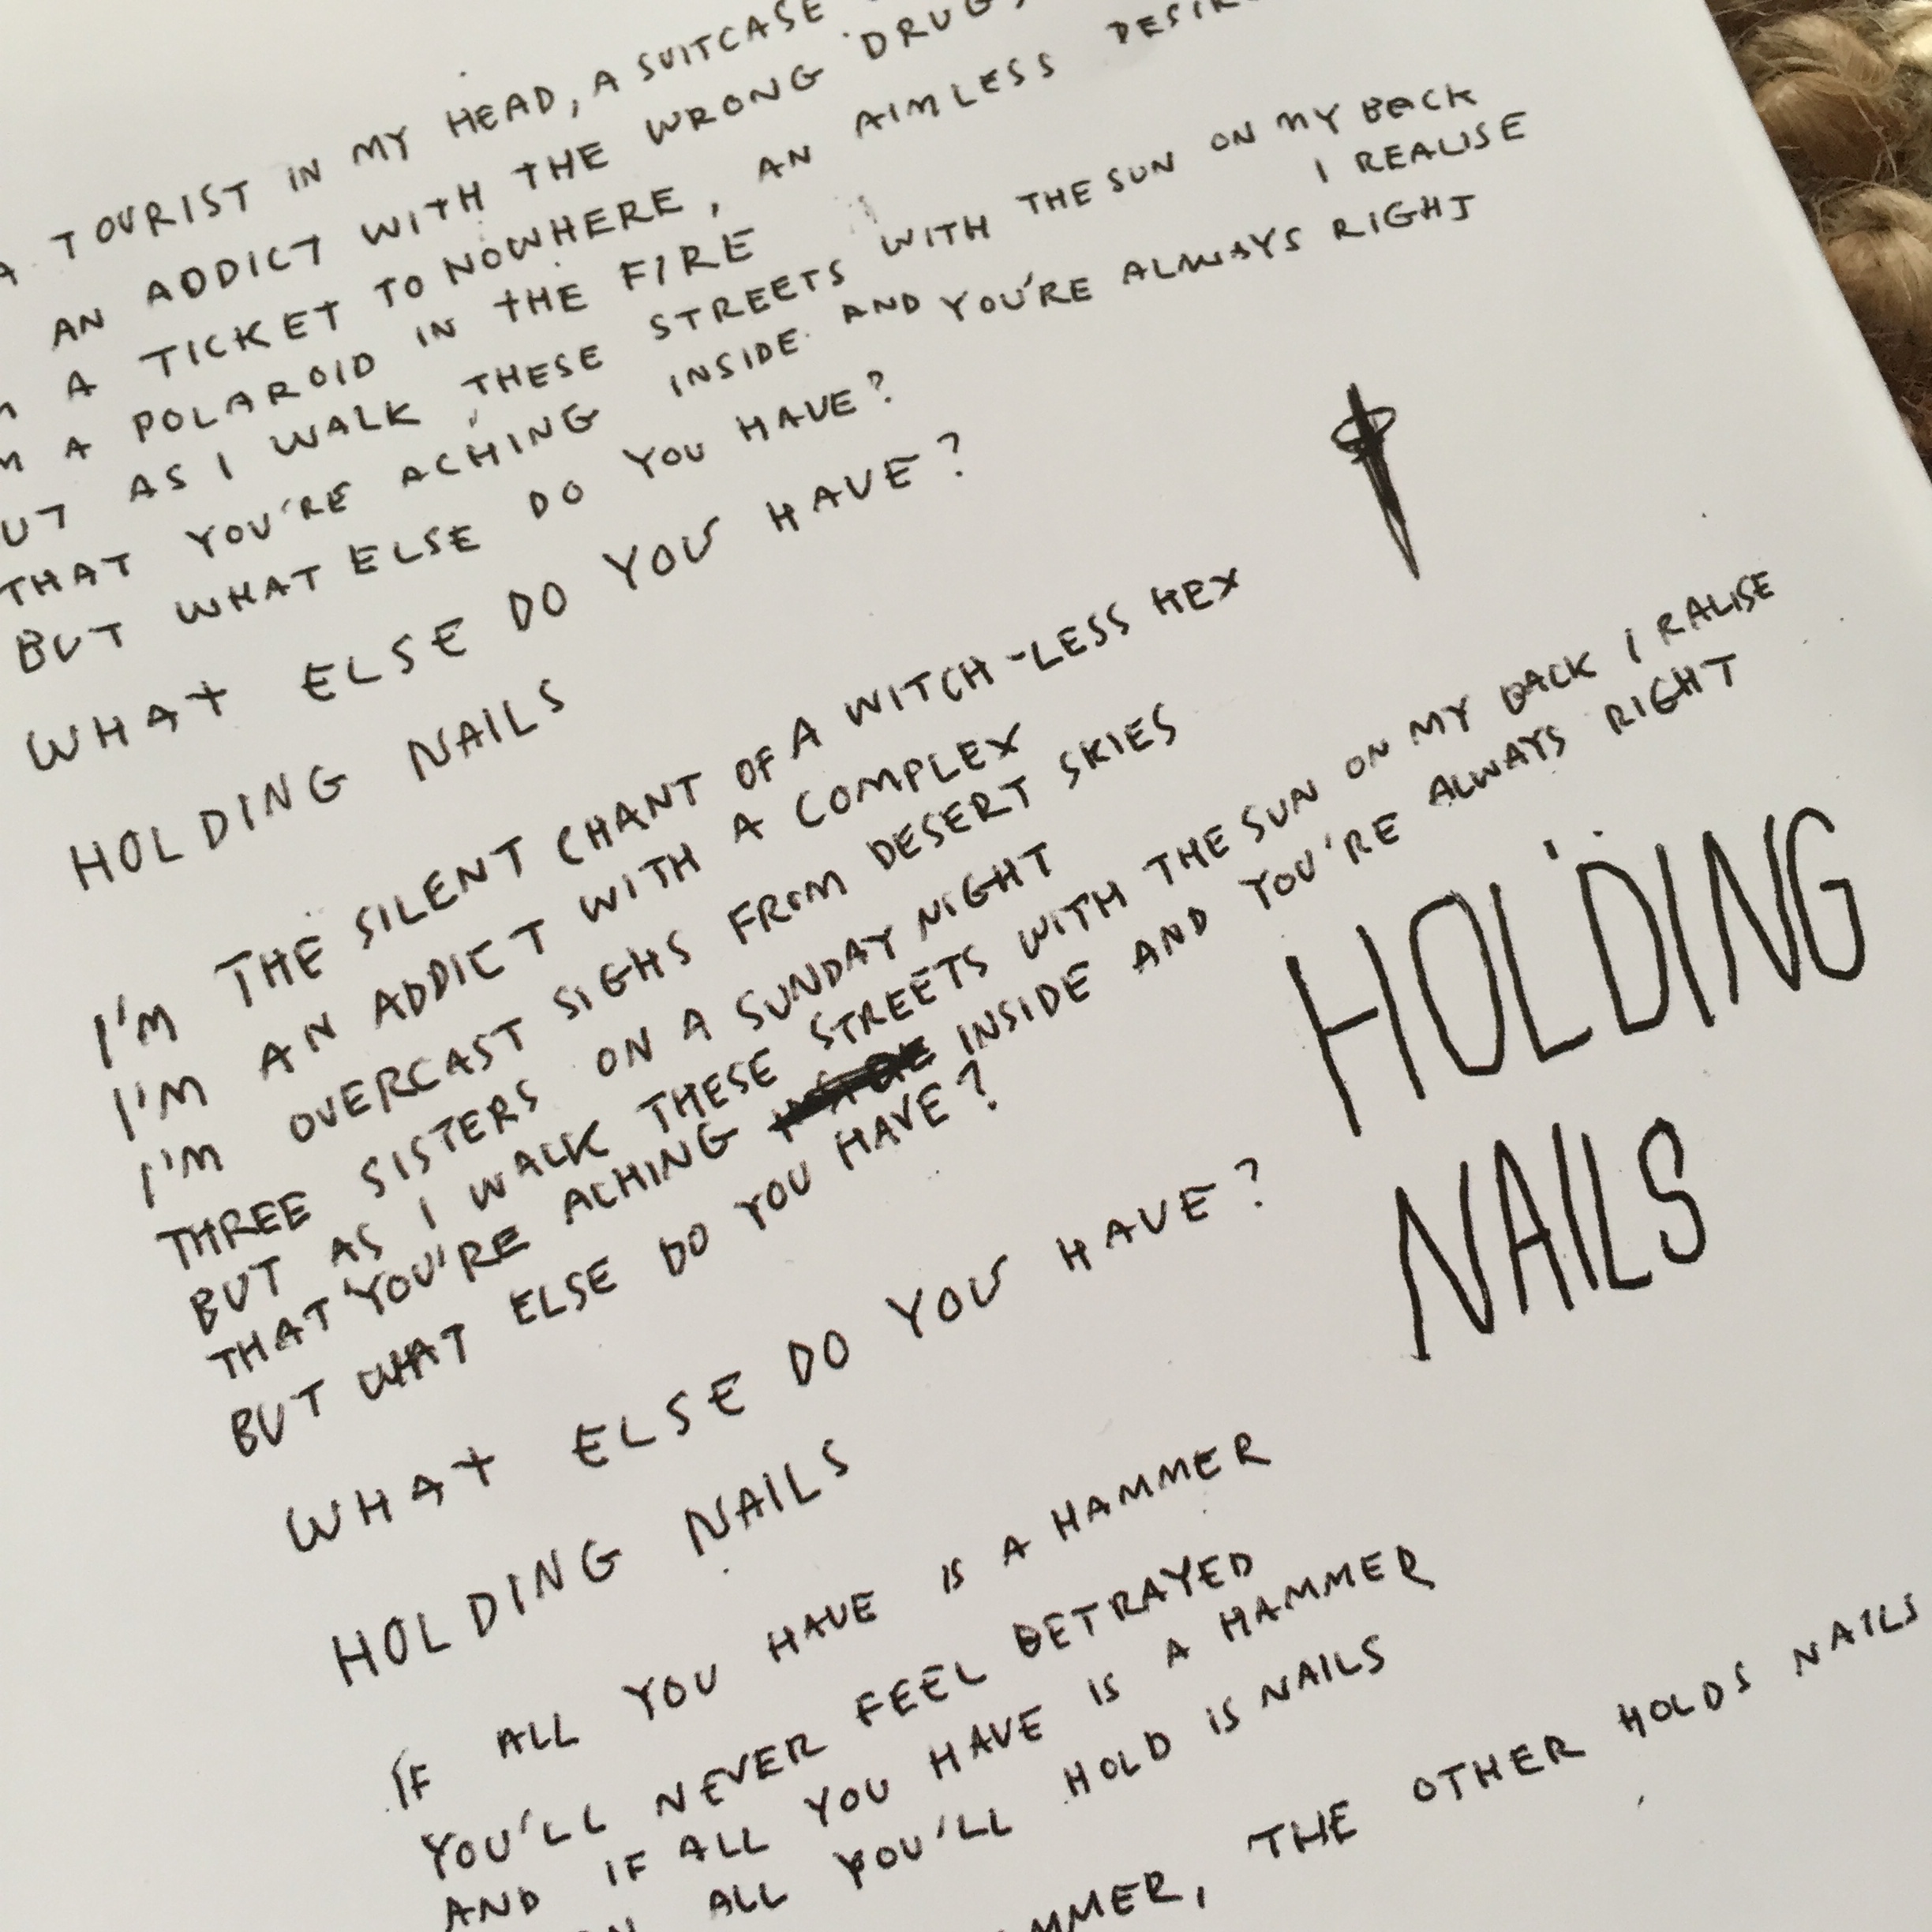 A TOURIST IN MY HEAD, A SUITCASE
AN ADDICT WITH THE WRONG DRUG,
A TICKET TO NOWHERE, AN AIMLESS
A POLAROID IN THE FIRE
AS I WALK THESE STREETS WITH THE SUN ON MY BACK
I REALISE
THAT YOU'RE ACHING INSIDE AND YOU'RE ALWAYS RIGHT
BUT WHAT ELSE DO YOU HAVE?
WHAT ELSE DO YOU HAVE?
HOLDING NAILS
I'M THE SILENT CHANT OF A WITCH-LESS HEX
I'M AN ADDICT WITH A COMPLEX
I'M OVERCAST SIGHS FROM DESERT SKIES
THREE SISTERS ON A SUNDAY NIGHT
BUT AS I WALK THESE STREETS WITH THE SUN ON MY BACK I RALISE
THAT YOU'RE ACHING INSIDE AND YOU'RE ALWAYS RIGHT
BUT WHAT ELSE DO YOU HAVE?
WHAT ELSE DO YOU HAVE?
HOLDING NAILS
HOLDING
NAILS
IF ALL YOU HAVE IS A HAMMER
YOU'LL NEVER FEEL BETRAYED
AND IF ALL YOU HAVE IS A HAMMER
ALL YOU'LL HOLD IS NAILS
THE OTHER HOLDS NAILS